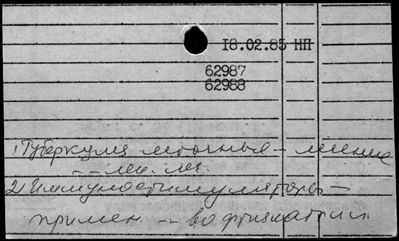 18.02.85 НП
62987
62988
1) Туберкулез легочные - лечение
- - лек. лег.
2) Иммуностимуляторы -
примен - во фтизиатрии